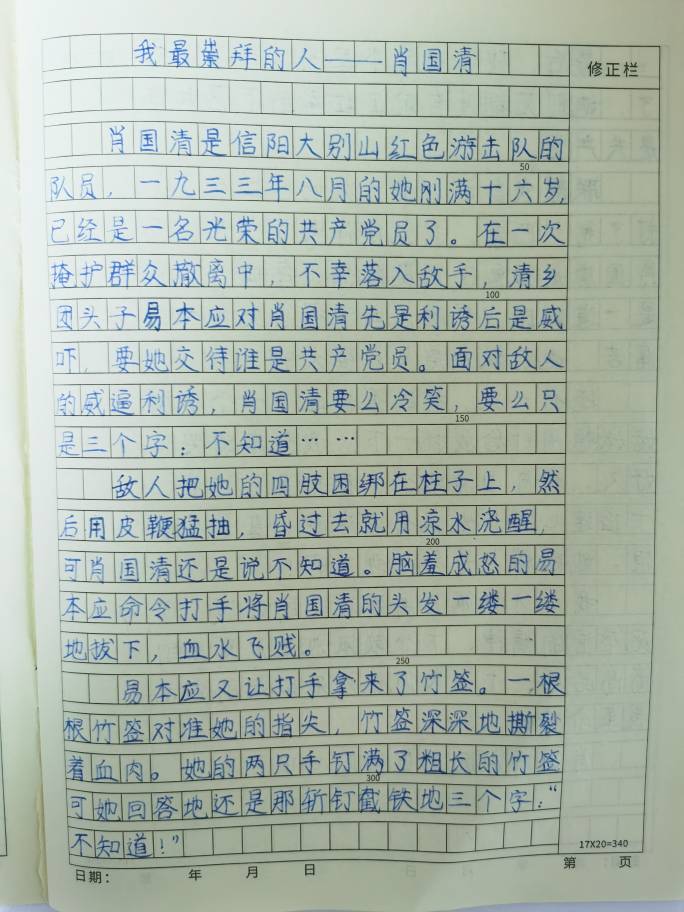 我最崇拜的人——肖国清
修正栏
肖国清是信阳大别山红色游击队的
50
队员，一九三三年八月的她刚满十六岁，
已经是一名光荣的共产党员了。在一次
掩护群众撤离中，不幸落入敌手，清乡
100
团头子易本应对肖国清先是利诱后是威
吓，要她交待谁是共产党员。面对敌人
的威逼利诱，肖国清要么冷笑，要么只
150
是三个字：不知道……
敌人把她的四肢困绑在柱子上，然
后用皮鞭猛抽，昏过去就用凉水浇醒，
200
可肖国清还是说不知道。脑羞成怒的易
本应命令打手将肖国清的头发一缕一缕
地拔下，血水飞贱。
250
易本应又让打手拿来了竹签。一根
根竹签对准她的指尖，竹签深深地撕裂
着血肉。她的两只手钉满了粗长的竹签
300
可她回答地还是那斩钉截铁地三个字：“
不知道！”
17X20=340
日期： 年 月 日 第 页